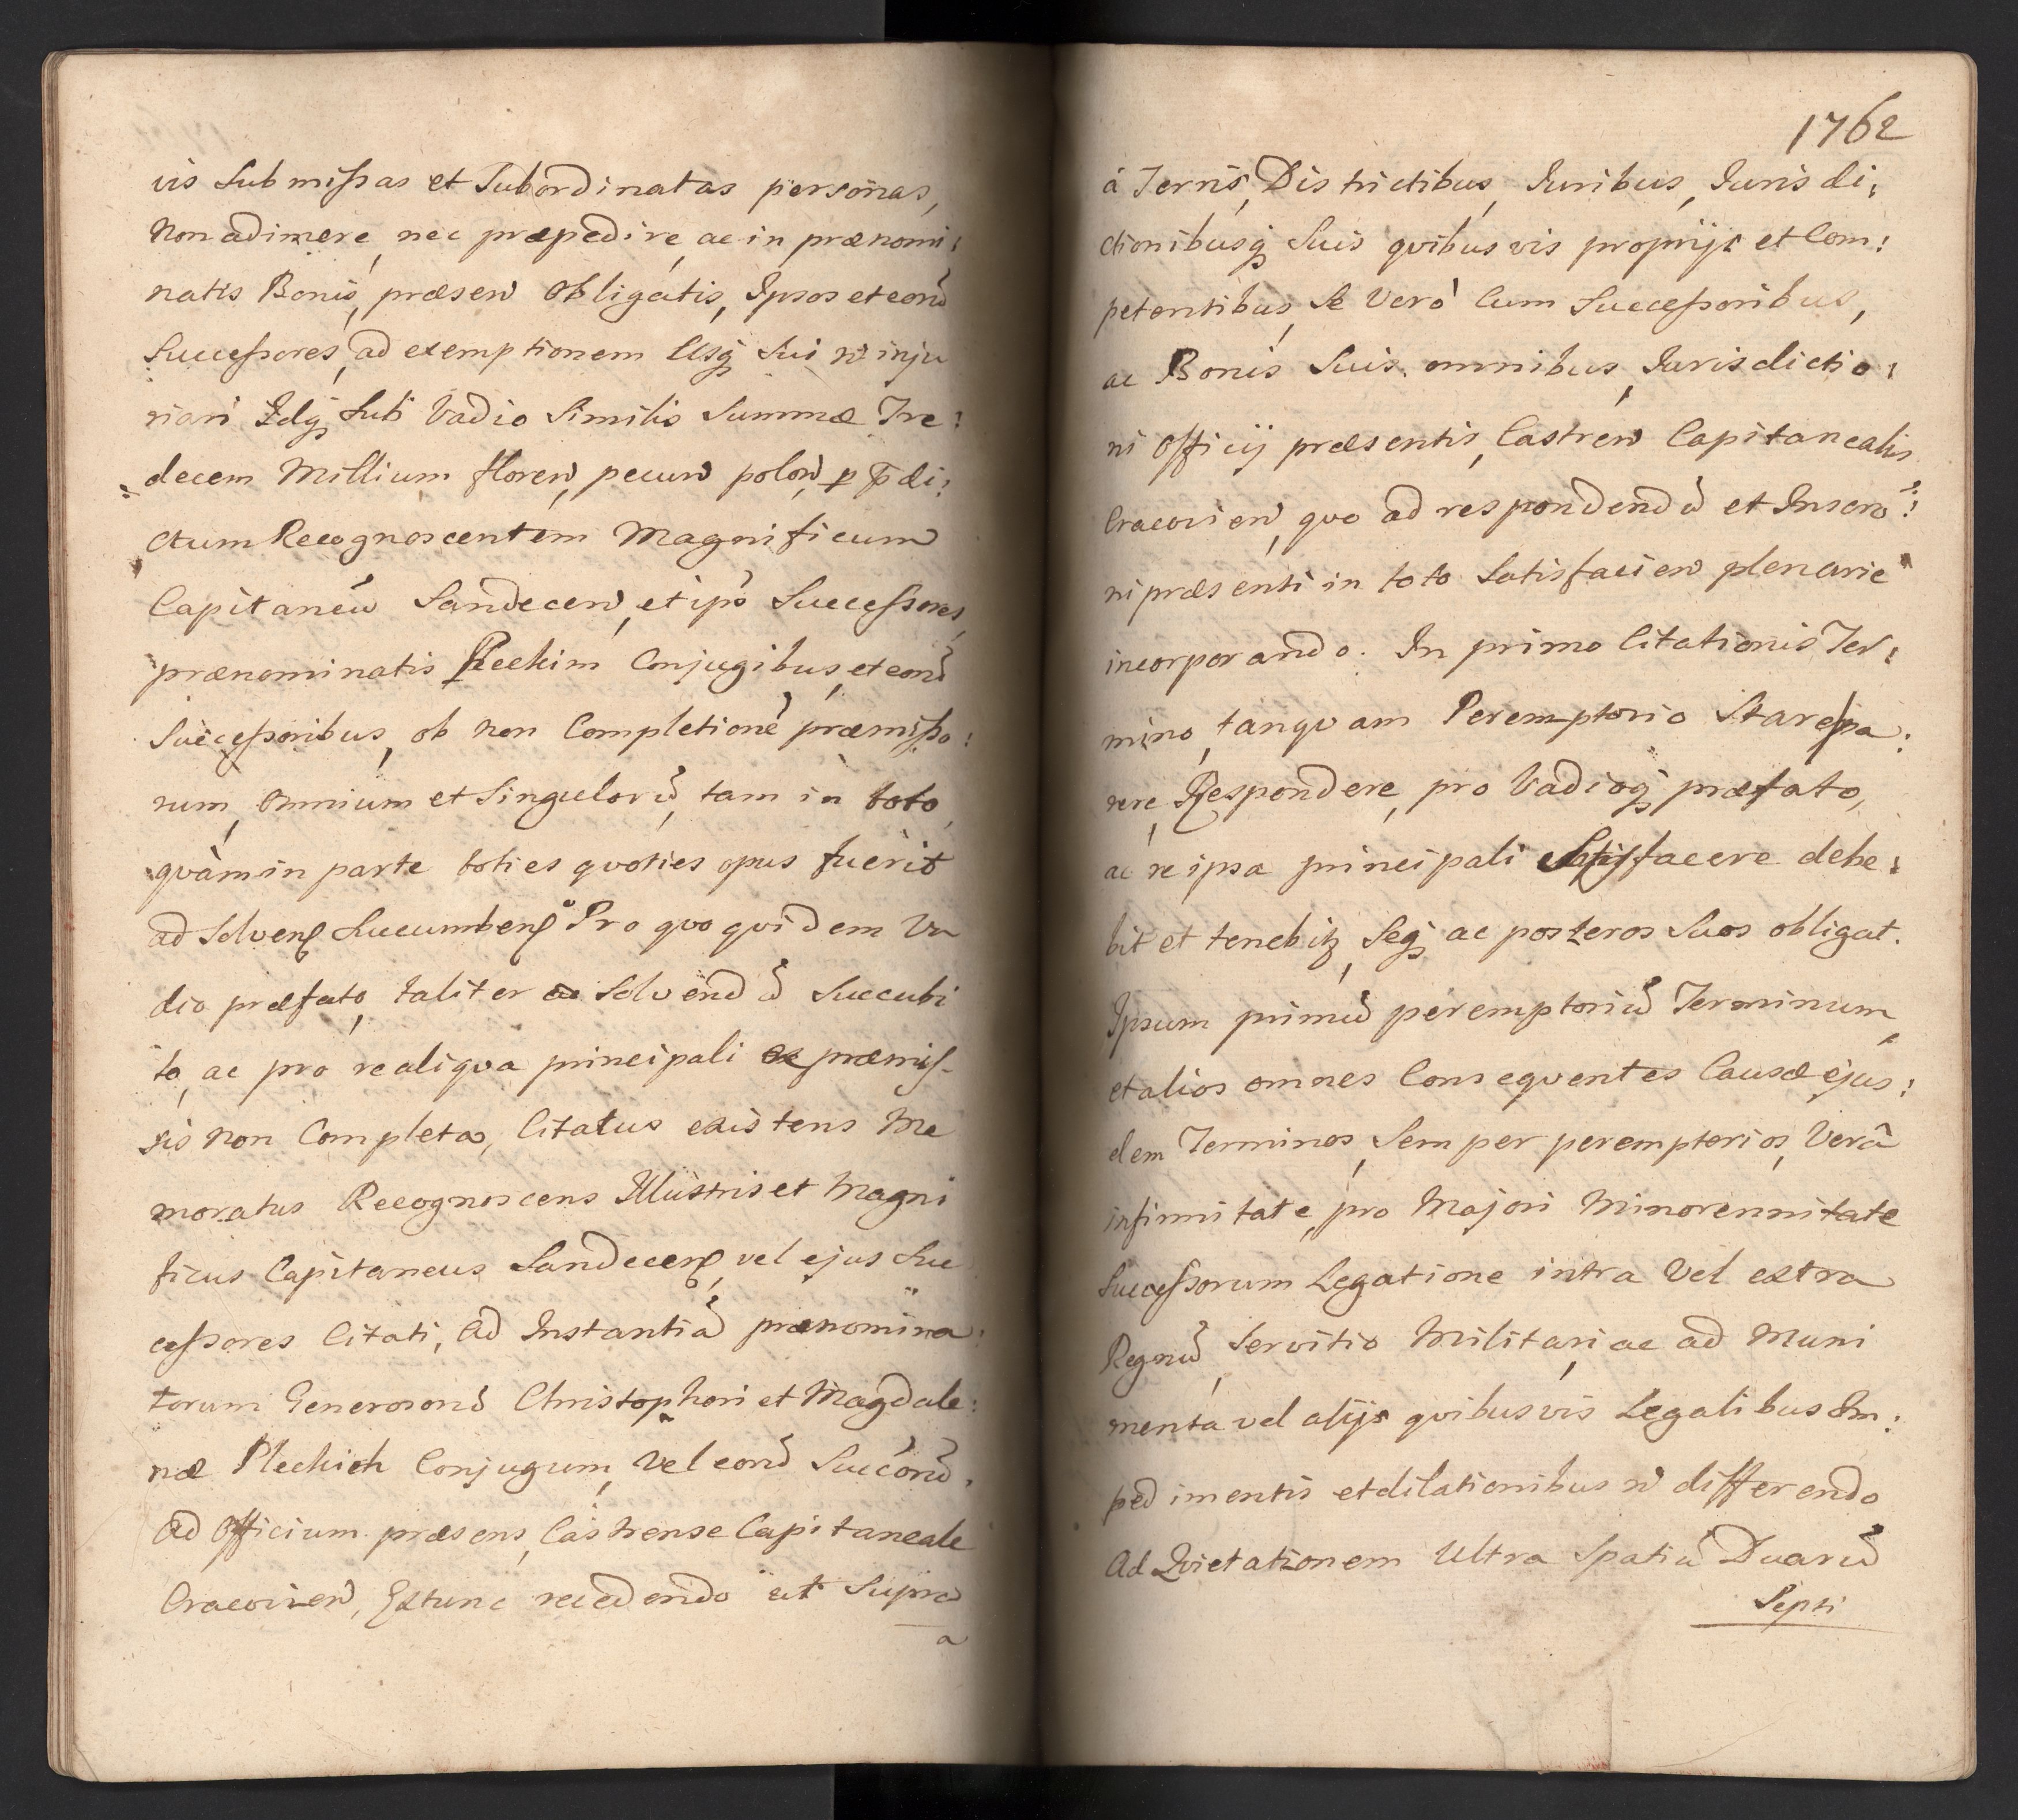 vis Submissas et Subordinatas personas,
Non adimere, nec præpedire, ac in prænomi:
natis Bonis, præsen obligatis, Ipsos et eorū
Successores, ad exemptionem Usq Sui n̄ inju
riari Idq Sub Vadio Similis Summæ Tre:
decem Millium floren, pecun polon, p p̄di:
ctum Recognoscentem Magnificum
Capitaneū Sandecen, et ips Successores,
prænominatis Conjugibus, et eorū
Successoribus, ob non Completionē præmisso:
rum, omnium et Singulorū, tam in toto,
qvàm in parte toties qvoties opus fuerit
ad Solven Succumben Pro qvo qvidem Va
dio præfato, taliter ad Solvendū Succubi
to, ac pro re aliqva principali ex præmis-
sis non Completa, Citatus existens Me
moratus Recognoscens Illustris et Magni
ficus Capitaneus Sandecen, vel ejus Suc
cessores Citati, Ad Instantiā prænomina:
torum Generosorū Christophori et Magdale:
næ Conjugum, Vel eorū Succorū,
Ad Officium præsens, Castrense Capitaneale
Cracovien, Extunc recedendo ut Supra
a
1762
á Terris, Districtibus, Juribus, Jurisdi:
ctionibusq Suis qvibusvis proprijs et Com:
petentibus, Se Verò Cum Successoribus,
ac Bonis Suis omnibus, Jurisdictio:
ni Officij præsentis, Castren Capitanealis
Cracovien, qvo ad respondendū et Inscrō:
ni præsenti in toto Satisfacien plenarie
incorporando. In primo Citationis Ter:
mino, tanqvam Peremptorio Stare pa:
rere, Respondere, pro Vadioq præfato,
ac re ipsa principali Satisfacere debe:
bit et tenebitz, Seq ac posteros Suos obligat.
Ipsum primū peremptoriū Terminum,
et alios omnes Conseqventes Causæ ejus:
dem Terminos, Semper peremptorios, Verâ
infirmitate, pro Majori Minorennitate
Successorum Legatione intra vel extra
Regnū, Servitio Militari, ac ad Muni
menta vel alijs qvibusvis Legalibus Im:
pedimentis et dilationibus n̄ differendo
Ad Qvietationem Ultra Spatiū Duarū
Septi